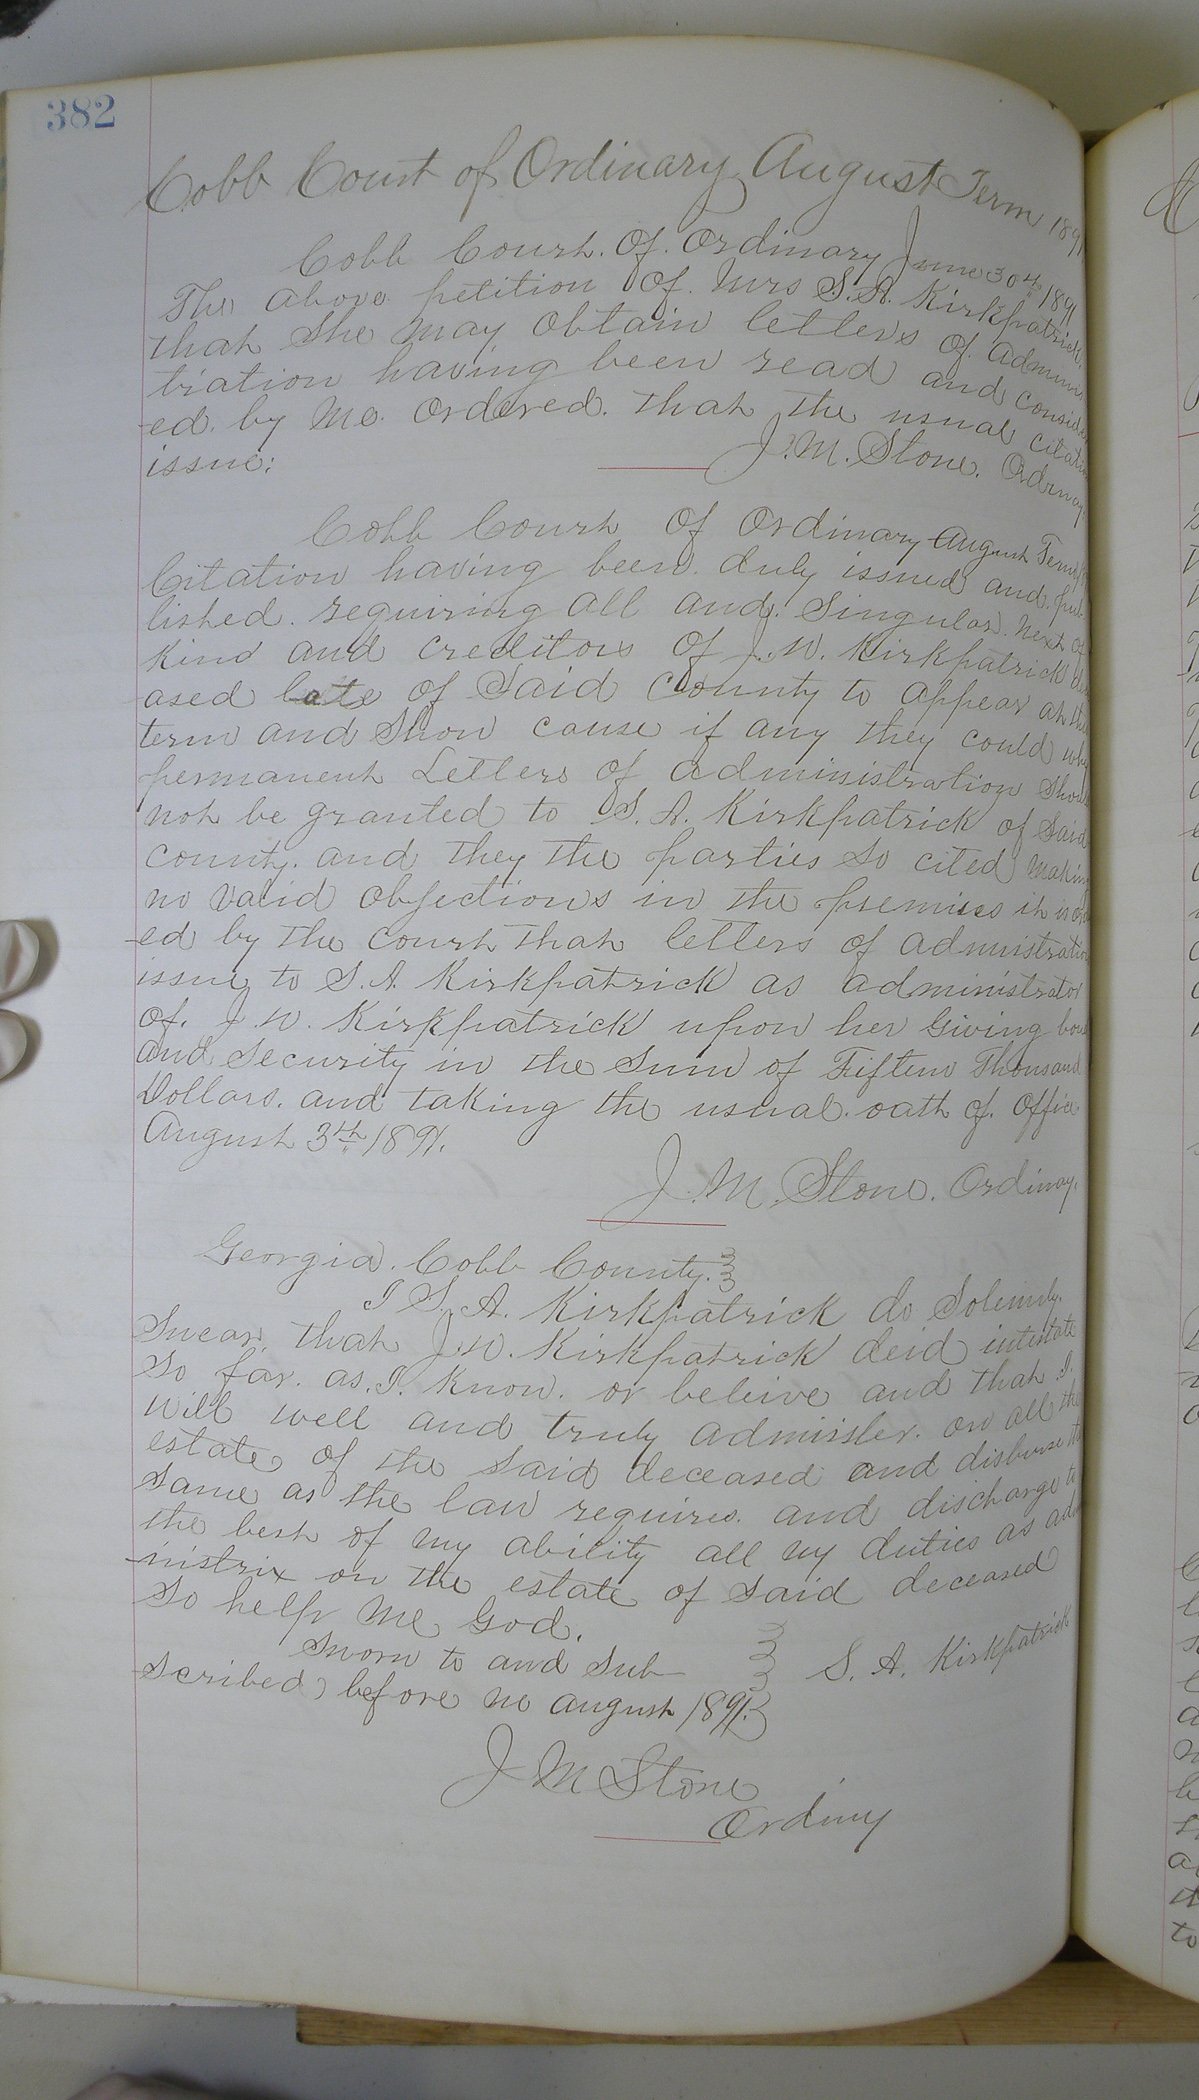 382
Cobb Court of Ordinary August Term 1891
Cobb Court. Of. Ordinary June 30th 1891
The above petition Of. Mrs S. A. Kirkpatrick.
that She May Obtain letters of. Adminis
tration having been read and consider
ed. by Me. Ordered. that the usual citation
issue:
J. M. Stone. Ordinary
Cobb Court Of Ordinary August Term
Citation having been duly issued and. pub
lished. requiring all and. Singular. next of
Kind and creditors of J. W. Kirkpatrick dece
ased late of Said County to appear at this
term and Show cause if any they could why
permanent Letters of administration Should
not be granted to S. A. Kirkpatrick of Said
County. and they the parties so cited making
no valid objections in the premises it is ord
ed by the court that letters of admnistration
issue to S. A. Kirkpatrick as administrator
of. J. W. Kirkpatrick upon her Giving bond
and Security in the Sum of Fifteen Thousand
Dollars. and taking the usual oath of. Office
August 3th 1891.
J. M. Stone. Ordinay.
Georgia. Cobb County.
I S. A. Kirkpatrick do Solemnly.
Swear. that J. W. Kirkpatrick deid intestate
So far. as. I. Know. or beleive and that I.
will well and truly admisler. on all the
estate of the said deceased and disburse the
same as the law requires. and discharge to
the best of my ability all my duties as adm
inistrix on the estate of said deceased
So help Me God.
Sworn to and Sub
scribed before me august 1891.
S. A. Kirkpatrick
J M Stone
Ordiny